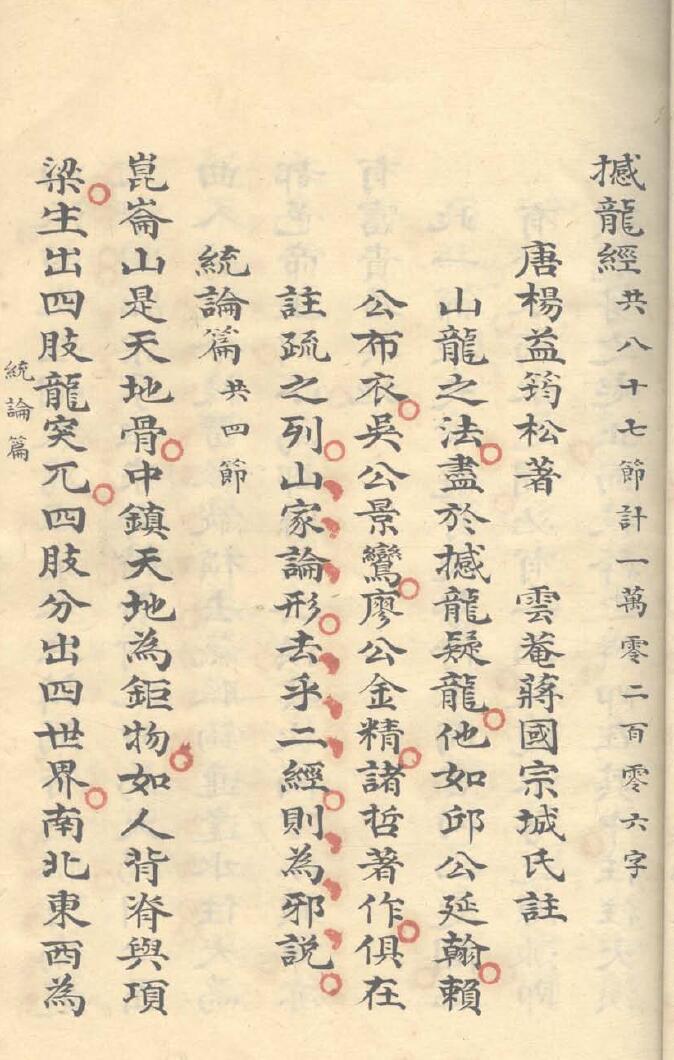 撼龍經共八十七節計一萬零二百零六字
唐楊益筠松著 雲菴蔣國宗城氏註
山龍之法盡於撼龍疑龍他如邱公延翰賴
公布衣吳公景鸞廖公金精諸哲著作俱在
註疏之列山家論形去乎二經則為邪說
統論篇共四節
崑崙山是天地骨中鎮天地為鉅物如人背脊與項
梁生出四肢龍突兀四肢分出四世界南北東西為
統論篇